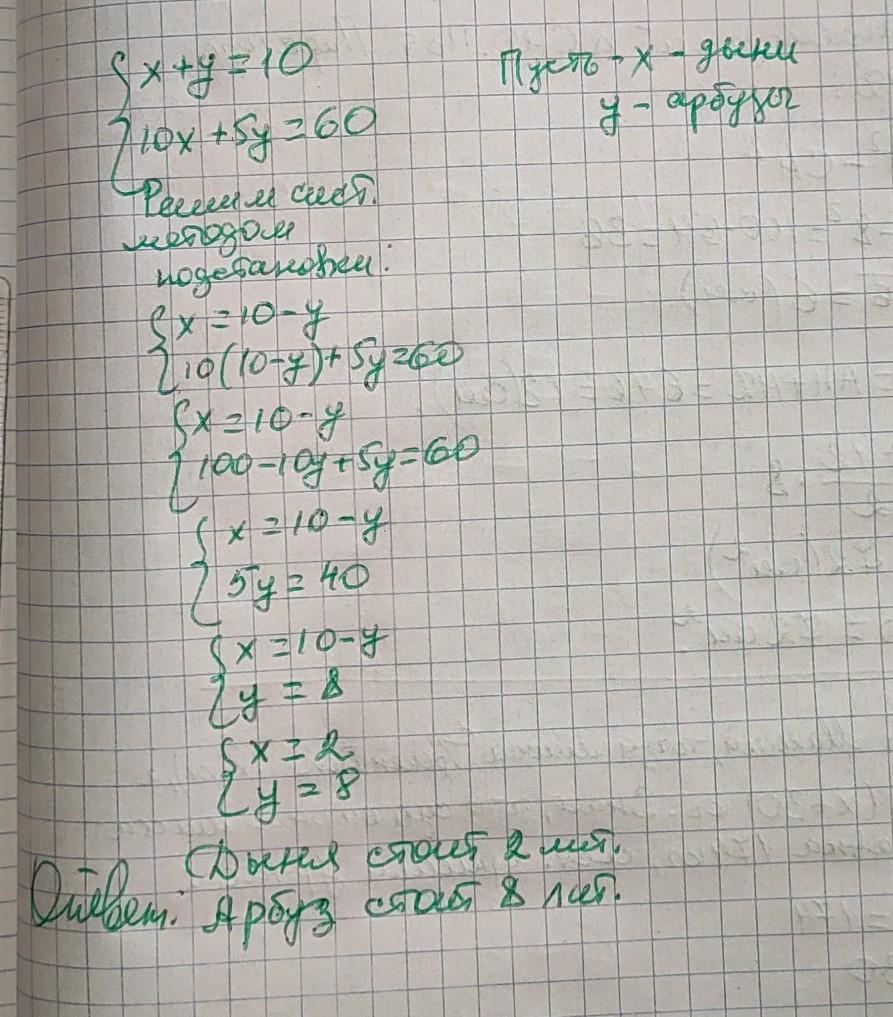 x+y=10
10x+5y=60
Пусть - x - дыни
y - арбузы
Решим сист.
методом
подстановки:
x=10-y
10(10-y)+5y=60
x=10-y
100-10y+5y=60
x=10-y
5y=40
x=10-y
y=8
x=2
y=8
Дыня стоит 2 лит.
Ответ: Арбуз стоит 8 лит.